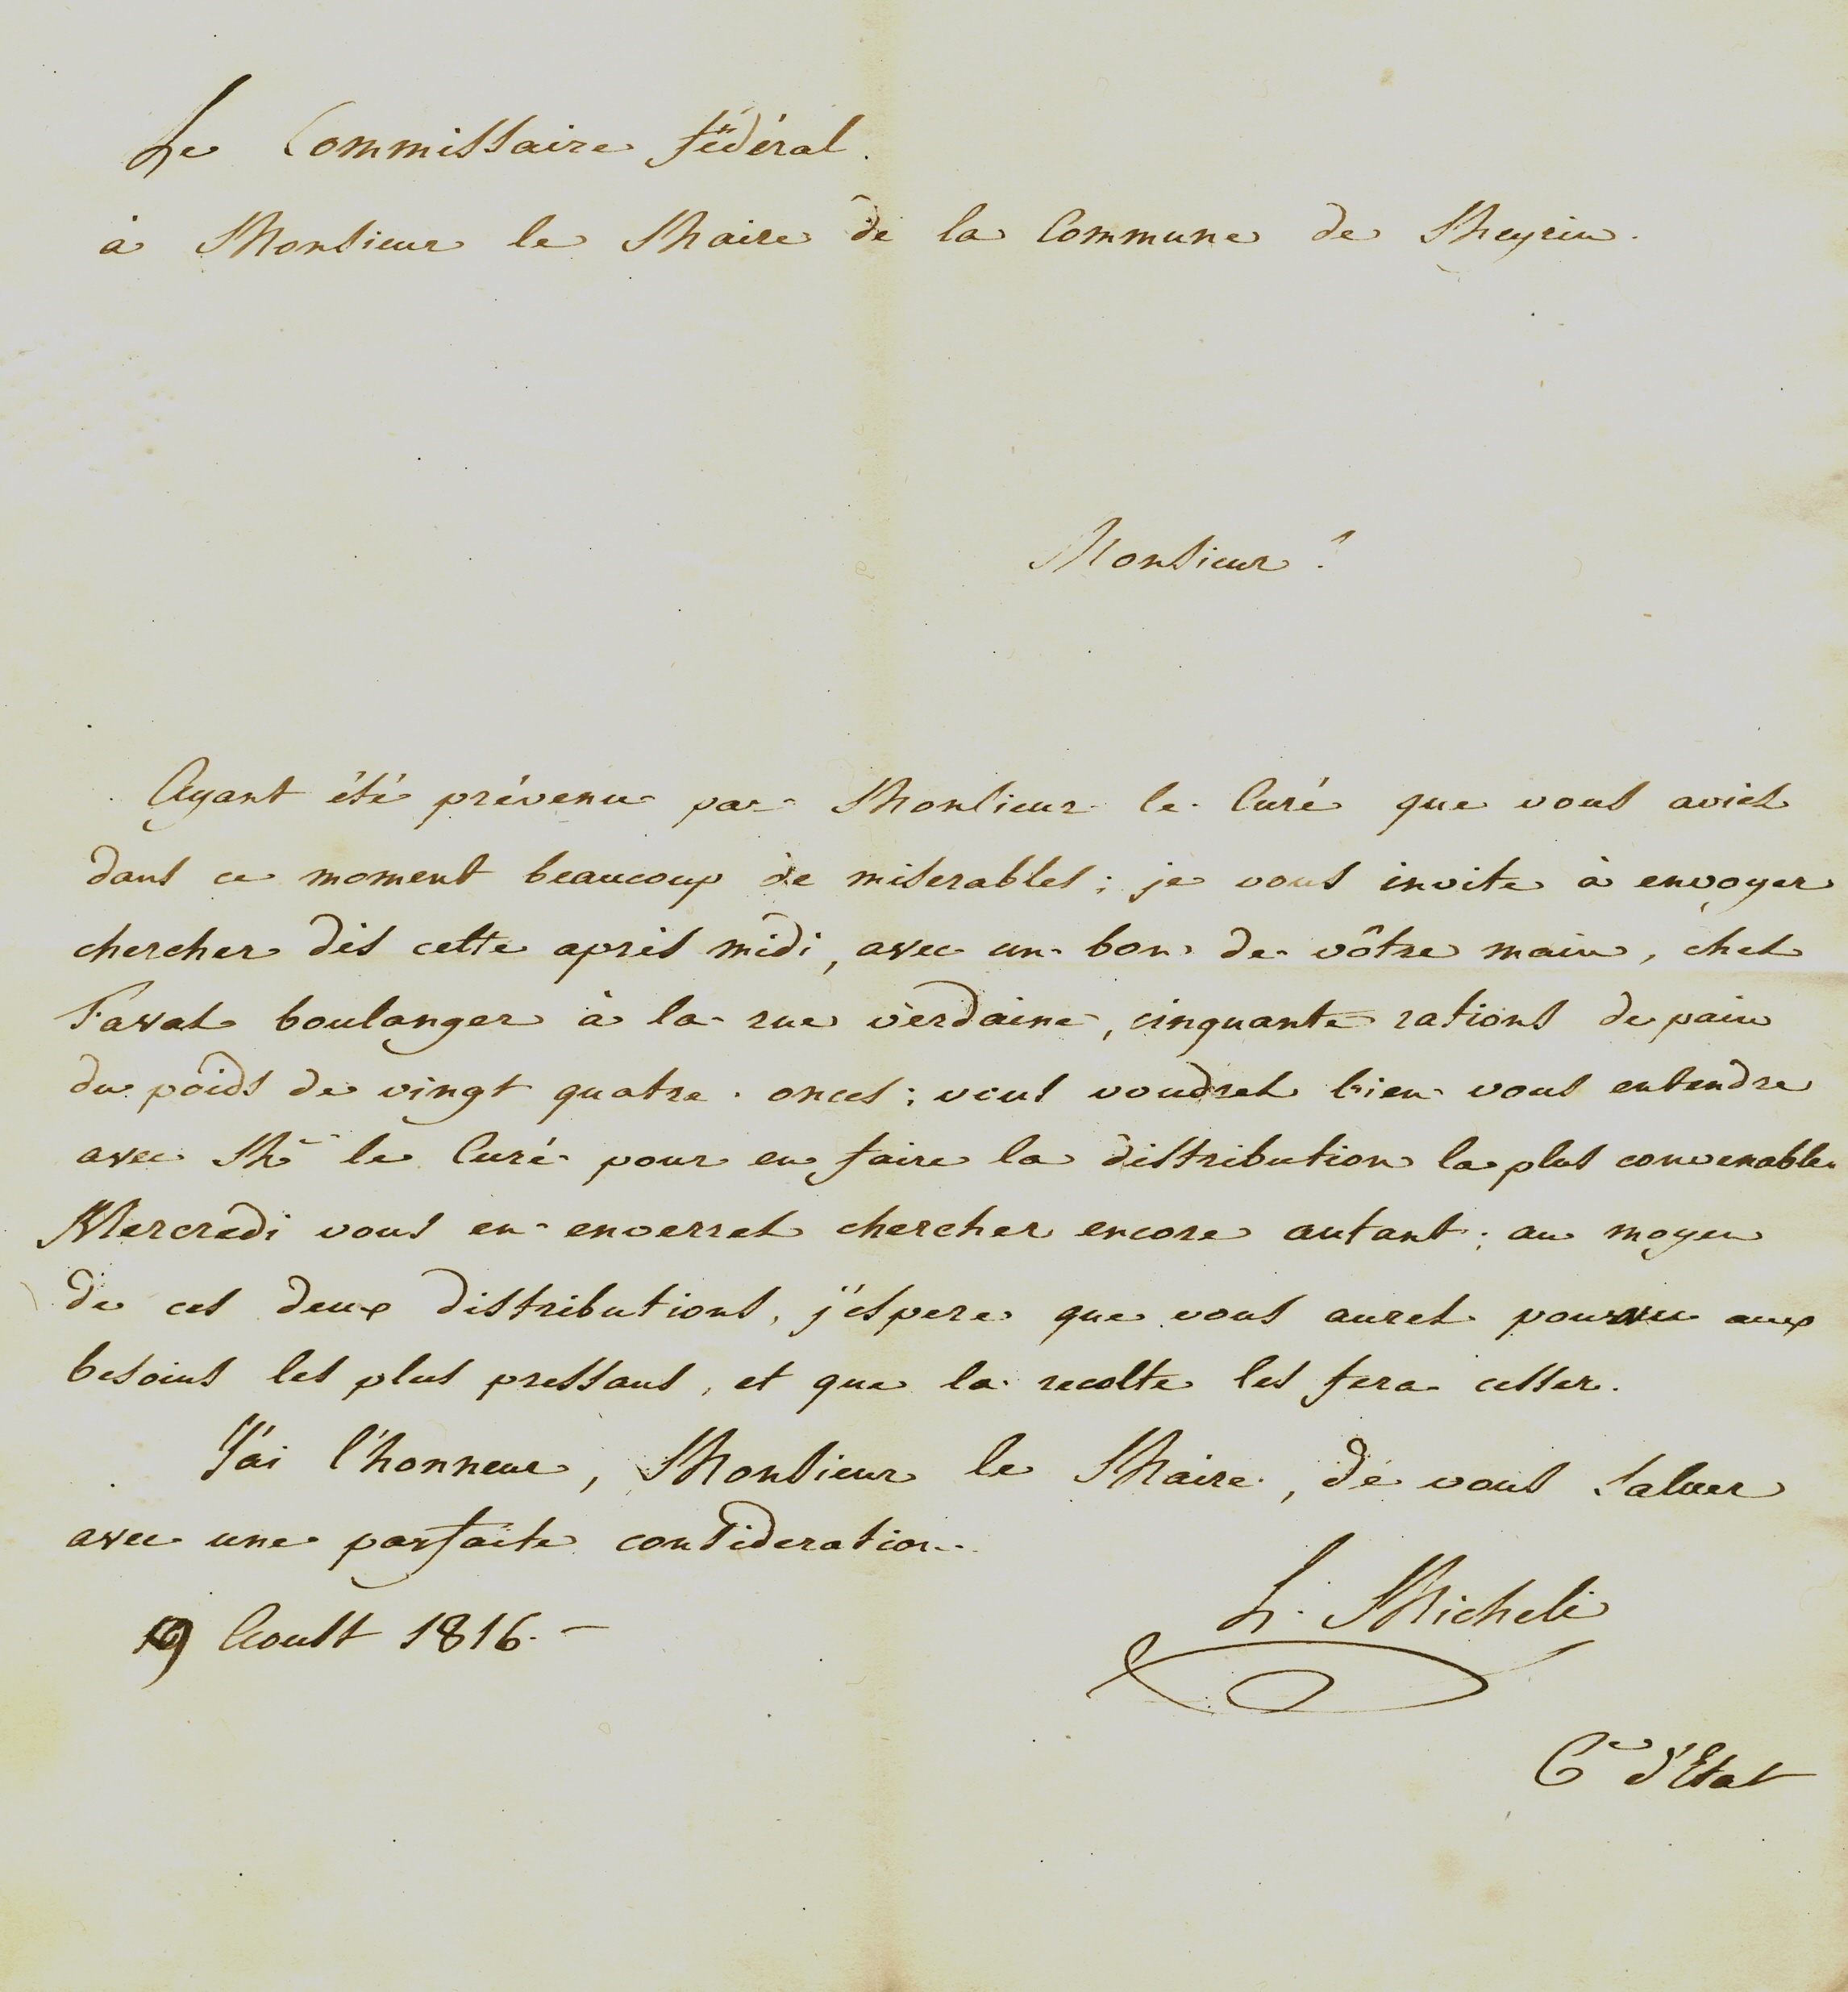 Le Commissaire fédéral.
à Monsieur le Maire de la Commune de Meyrin.
Monsieur !
Ayant été prévenu par Monsieur le Curé que vous aviez
dans ce moment beaucoup de miserables ; je vous invite à envoyer
chercher dès cette après midi, avec un bon de vôtre main, chez
Favat boulanger à la rue verdaine, cinquante rations de pain
du poids de vingt quatre onces ; vous voudrez bien vous entendre
avec Mr le Curé pour en faire la distribution la plus convenable.
Mercredi vous en enverrez chercher encore autant ; au moyen
de ces deux distributions, j'espere que vous aurez pourvu aux
besoins les plus pressans, et que la recolte les fera cesser.
J'ai l'honneur, Monsieur le Maire, de vous saluer
avec une parfaite consideration.
Aoust 1816. –
L. Micheli
Cer d'Etat